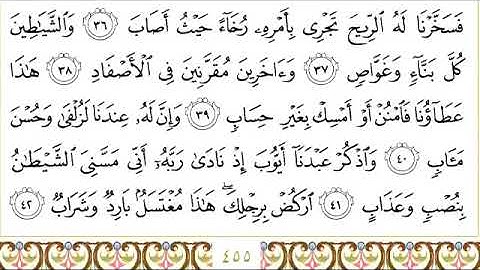 فَسَخَّرْنَا لَهُ ٱلرِّيحَ تَجْرِى بِأَمْرِهِۦ رُخَآءً حَيْثُ أَصَابَ ٣٦ وَٱلشَّيَٰطِينَ
كُلَّ بَنَّآءٍ وَغَوَّاصٍ ٣٧ وَءَاخَرِينَ مُقَرَّنِينَ فِى ٱلْأَصْفَادِ ٣٨ هَٰذَا
عَطَآؤُنَا فَٱمْنُنْ أَوْ أَمْسِكْ بِغَيْرِ حِسَابٍ ٣٩ وَإِنَّ لَهُۥ عِندَنَا لَزُلْفَىٰ وَحُسْنَ
مَـَٔابٍ ٤٠ وَٱذْكُرْ عَبْدَنَآ أَيُّوبَ إِذْ نَادَىٰ رَبَّهُۥٓ أَنِّى مَسَّنِىَ ٱلشَّيْطَٰنُ
بِنُصْبٍ وَعَذَابٍ ٤١ ٱرْكُضْ بِرِجْلِكَ ۖ هَٰذَا مُغْتَسَلٌۢ بَارِدٌ وَشَرَابٌ ٤٢
٤٥٥